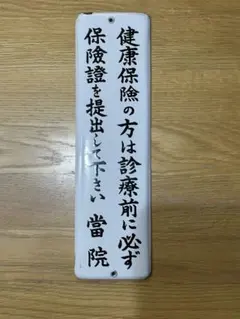 健康保險の方は診療前に必ず
保險證を提出して下さい 當院